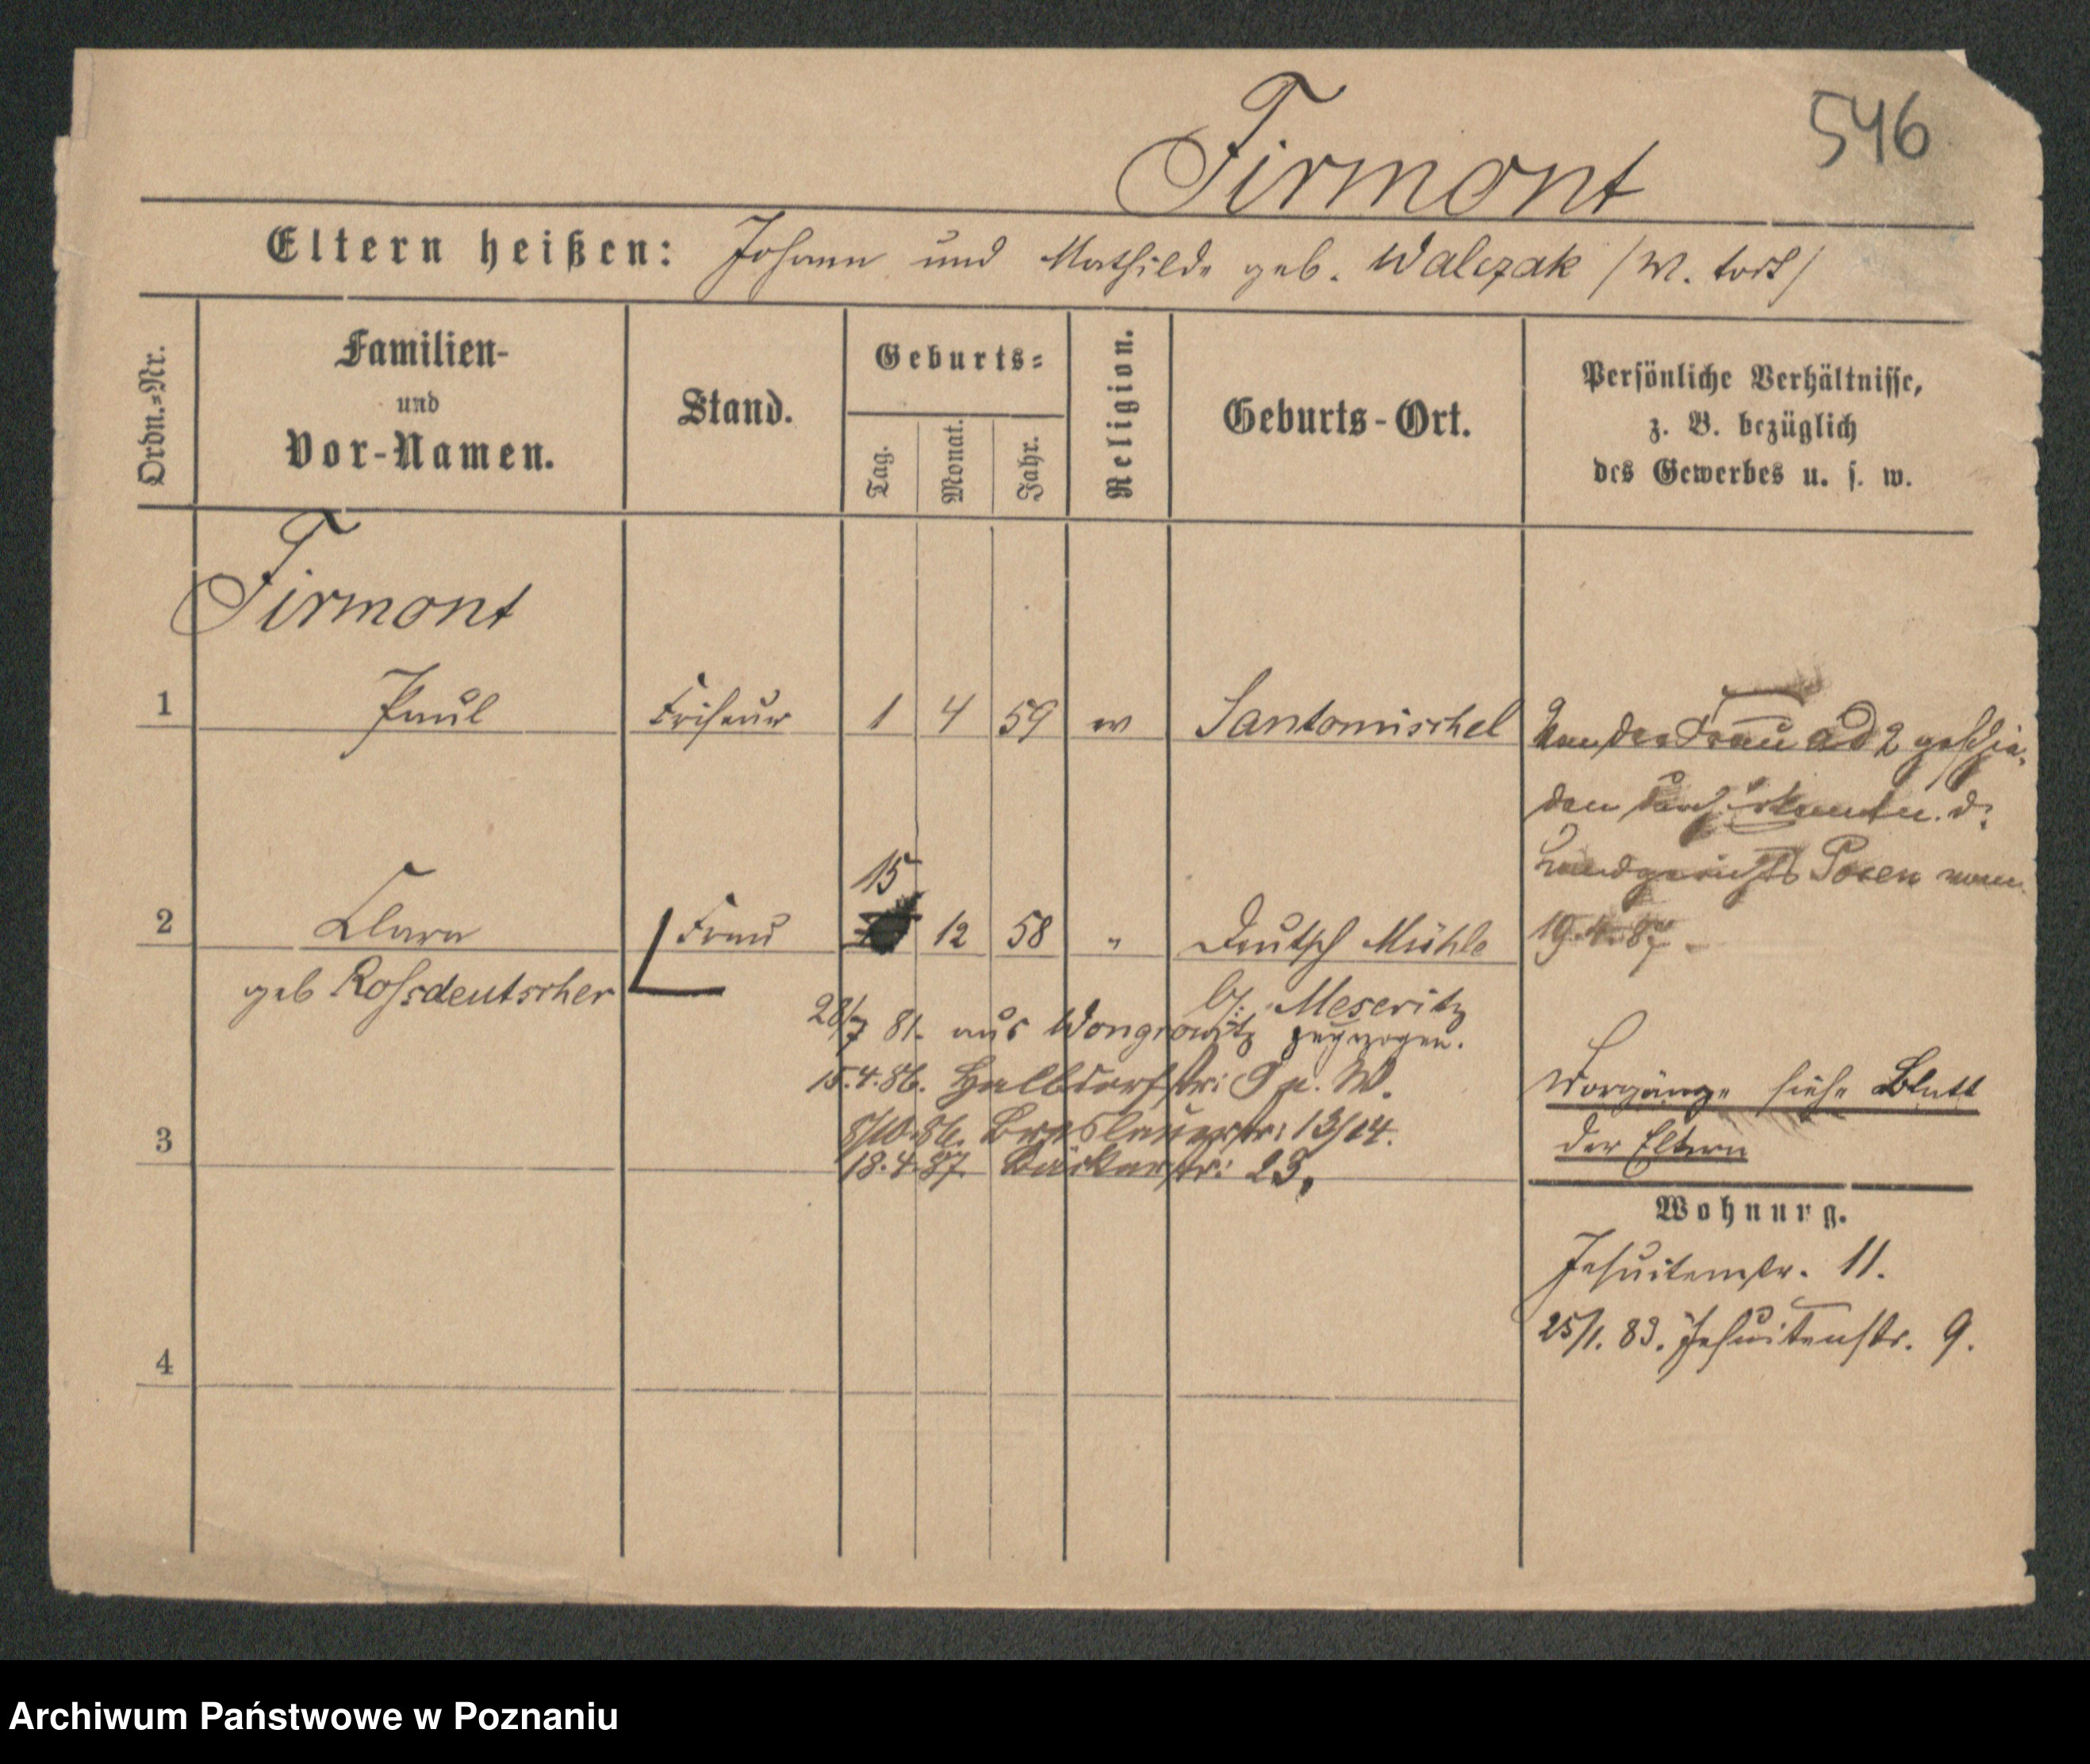 546
Firmont
Eltern heißen: Johann und Mathilde geb. Walczak /M. tort/
Ordn.=Nr.
Familien-
und
Vor-Namen.
Stand.
Geburts=
Tag.
Monat.
Jahr.
Religion.
Geburts-Ort.
Persönliche Verhältnisse,
z. B. bezüglich
des Gewerbes u. s. w.
Firmont
1 Paul Friseur 1 4 59 Santomischel
Von der Frau ad 2 geschie-
den durch Erkenntn. d.
Landgerichts Posen vom
19.4.87.
15
2 Clara Frau 12 58 " Deutsch Mühle
geb Rossdeutscher
by. Meseritz
28/7 81. aus Wongrowitz zugezogen.
15.4.86. Halbdorfstr: 9 W.
8/10.86. Breslauerstr: 13/14.
3
18.4.87. Bäckerstr: 23.
Vorgänge siehe Blatt
der Eltern
Wohnung.
Jesuitenstr. 11.
25/1. 83. Jesuitenstr. 9.
4
Archiwum Państwowe w Poznaniu